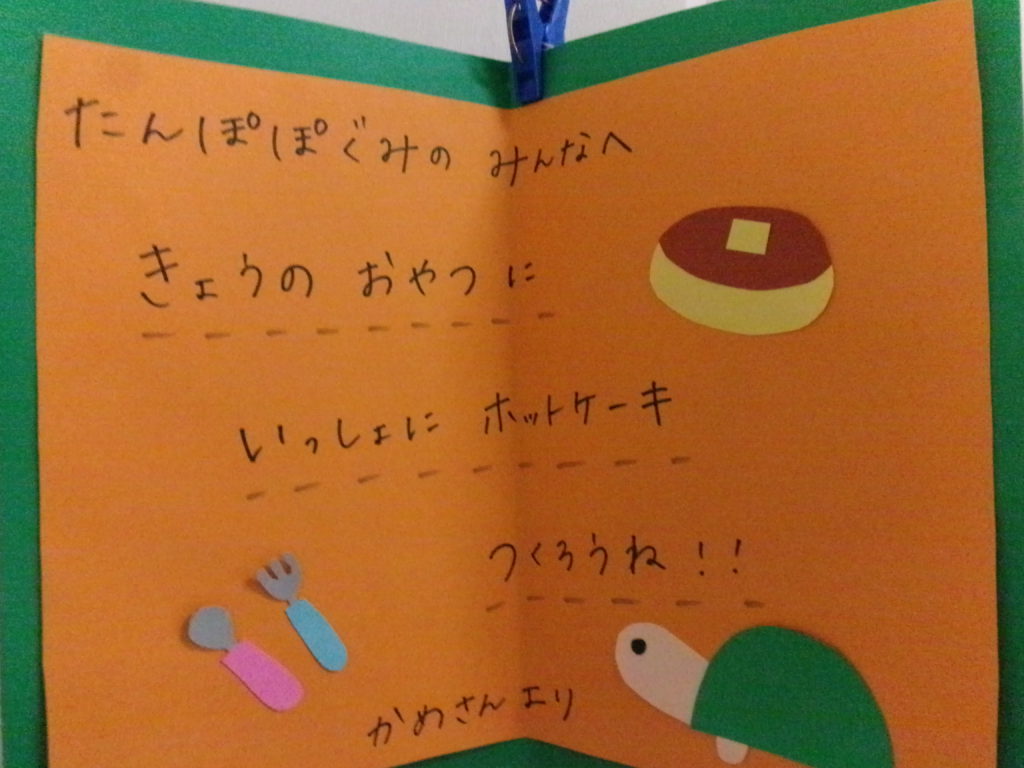 たんぽぽぐみの みんなへ
きょうの おやつに
いっしょに ホットケーキ
つくろうね!!
かめさんより